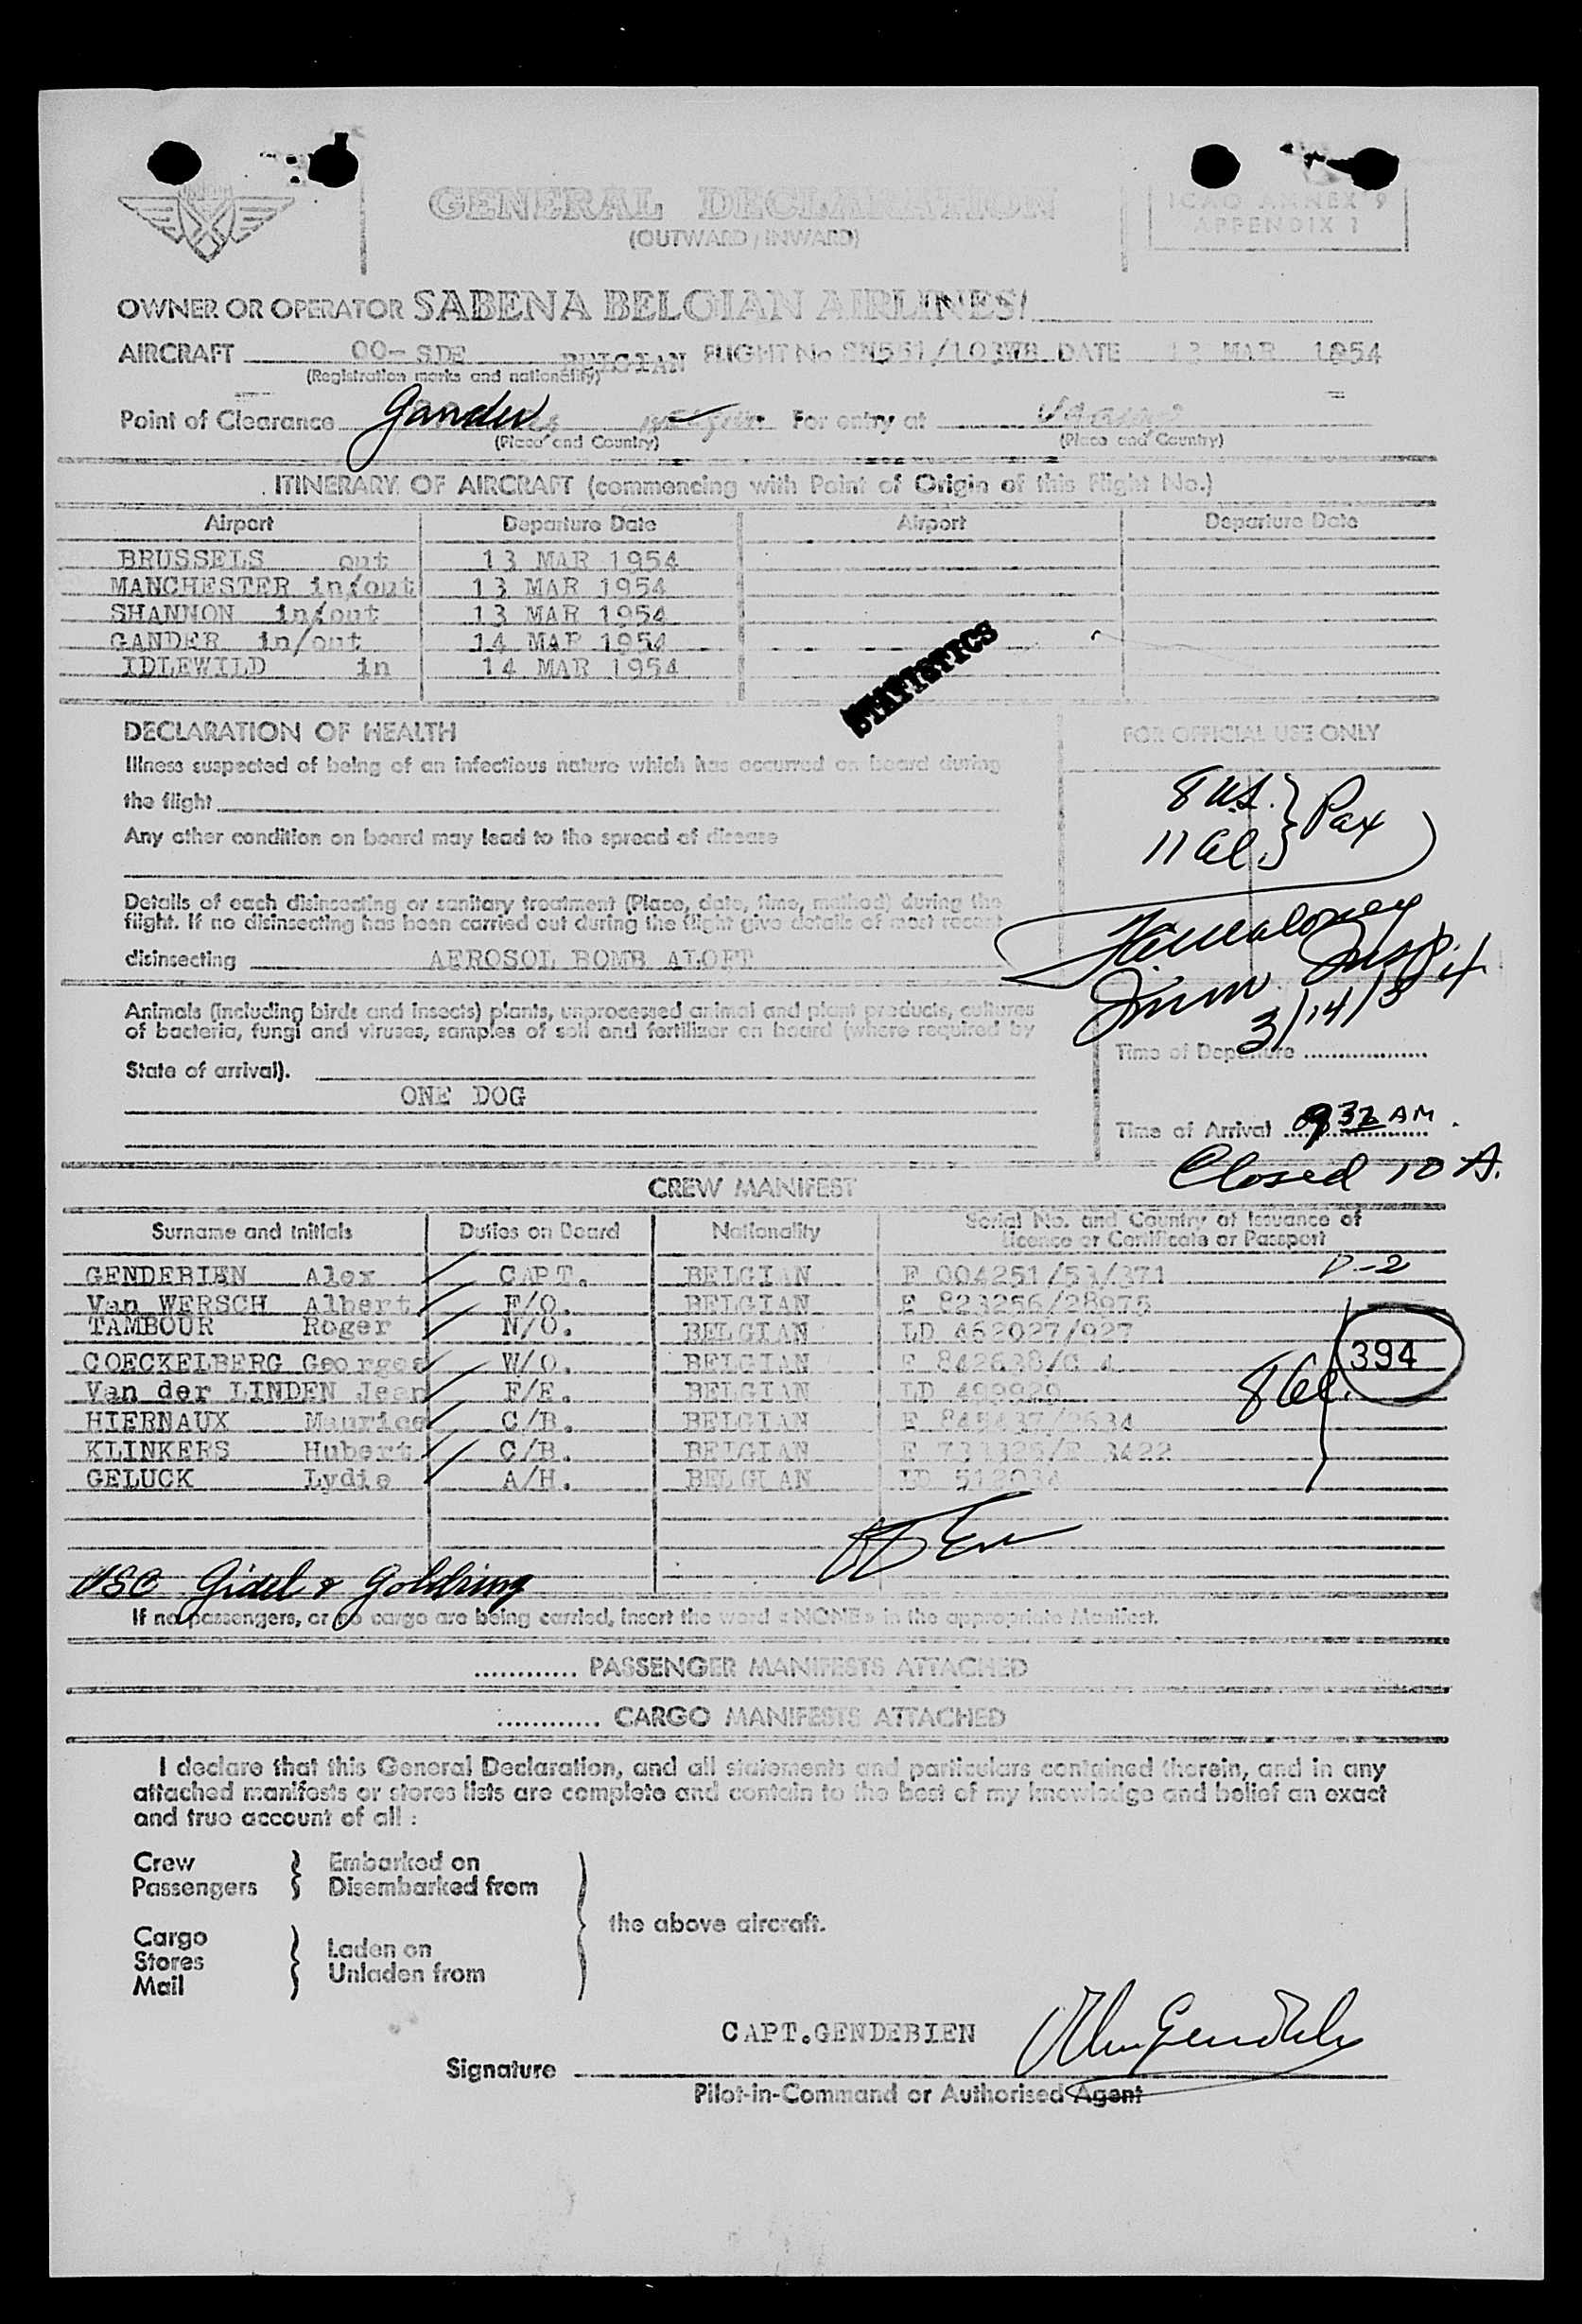 GENERAL DECLARATION
(OUTWARD / INWARD)
ICAO ANNEX 9
APPENDIX 1
OWNER OR OPERATOR SABENA BELGIAN AIRLINES
AIRCRAFT OO-SDE BELGIAN FLIGHT No SN551/103WB DATE 13 MAR 1954
(Registration marks and nationality)
Point of Clearance Gander For entry at
(Place and Country) (Place and Country)
ITINERARY OF AIRCRAFT (commencing with Point of Origin of this Flight No.)
Airport Departure Date Airport Departure Date
BRUSSELS out 13 MAR 1954
MANCHESTER in/out 13 MAR 1954
SHANNON in/out 13 MAR 1954
GANDER in/out 14 MAR 1954
IDLEWILD in 14 MAR 1954
STATISTICS
DECLARATION OF HEALTH
FOR OFFICIAL USE ONLY
Illness suspected of being of an infectious nature which has occurred on board during
the flight
8 US. } Pax
11 Al. }
Any other condition on board may lead to the spread of disease
Details of each disinsecting or sanitary treatment (Place, date, time, method) during the
flight. If no disinsecting has been carried out during the flight give details of most recent
disinsecting AEROSOL BOMB ALOFT
Imm Insp.
3/14/54
Animals (including birds and insects) plants, unprocessed animal and plant products, cultures
of bacteria, fungi and viruses, samples of soil and fertilizer on board (where required by
State of arrival).
Time of Departure
ONE DOG
Time of Arrival 0932 AM
Closed 10 A.
CREW MANIFEST
Surname and Initials Duties on Board Nationality Serial No. and Country of Issuance of
Licence or Certificate or Passport
GENDEBIEN Alex CAPT. BELGIAN E 004251/53/371 D-2
Van WERSCH Albert F/O. BELGIAN E 823256/28975
TAMBOUR Roger N/O. BELGIAN LD 462027/927
COECKELBERG Georges W/O. BELGIAN E 842638/C 4 394
Van der LINDEN Jean F/E. BELGIAN LD 499929 8 Al.
HIERNAUX Maurice C/B. BELGIAN E 845437/2634
KLINKERS Hubert C/B. BELGIAN E 733325/E 3422
GELUCK Lydie A/H. BELGIAN LD 512034
USC Gidel & Goldring
If no passengers, or no cargo are being carried, insert the word «NONE» in the appropriate Manifest.
............ PASSENGER MANIFESTS ATTACHED
............ CARGO MANIFESTS ATTACHED
I declare that this General Declaration, and all statements and particulars contained therein, and in any
attached manifests or stores lists are complete and contain to the best of my knowledge and belief an exact
and true account of all :
Crew Embarked on
Passengers Disembarked from
the above aircraft.
Cargo
Stores Laden on
Mail Unladen from
CAPT.GENDEBIEN
Signature
Pilot-in-Command or Authorised Agent